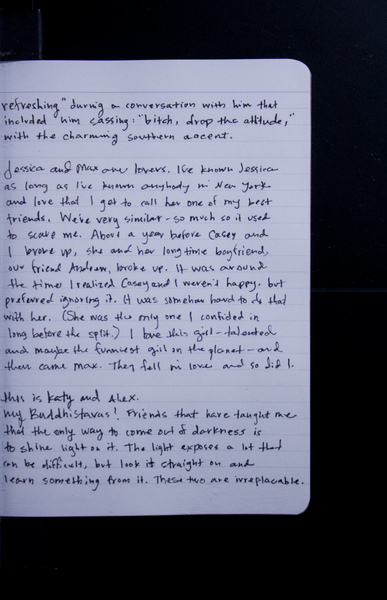 refreshing" during a conversation with him that
included him sassing: "bitch, drop the attitude,"
with the charming southern accent.
Jessica and Max are lovers. I've known Jessica
as long as I've known anybody in New York
and love that I get to call her one of my best
friends. We're very similar - so much so it used
to scare me. About a year before Casey and
I broke up, she and her longtime boyfriend,
our friend Andrew, broke up. It was around
the time I realized Casey and I weren't happy, but
preferred ignoring it. It was somehow hard to do that
with her. (She was the only one I confided in
long before the split.) I love this girl - talented
and maybe the funniest girl on the planet - and
then came Max. They fell in love and so did I.
This is Katy and Alex.
My Buddhistavas! Friends that have taught me
that the only way to come out of darkness is
to shine light on it. The light exposes a lot that
can be difficult, but look it straight on and
learn something from it. These two are irreplacable.